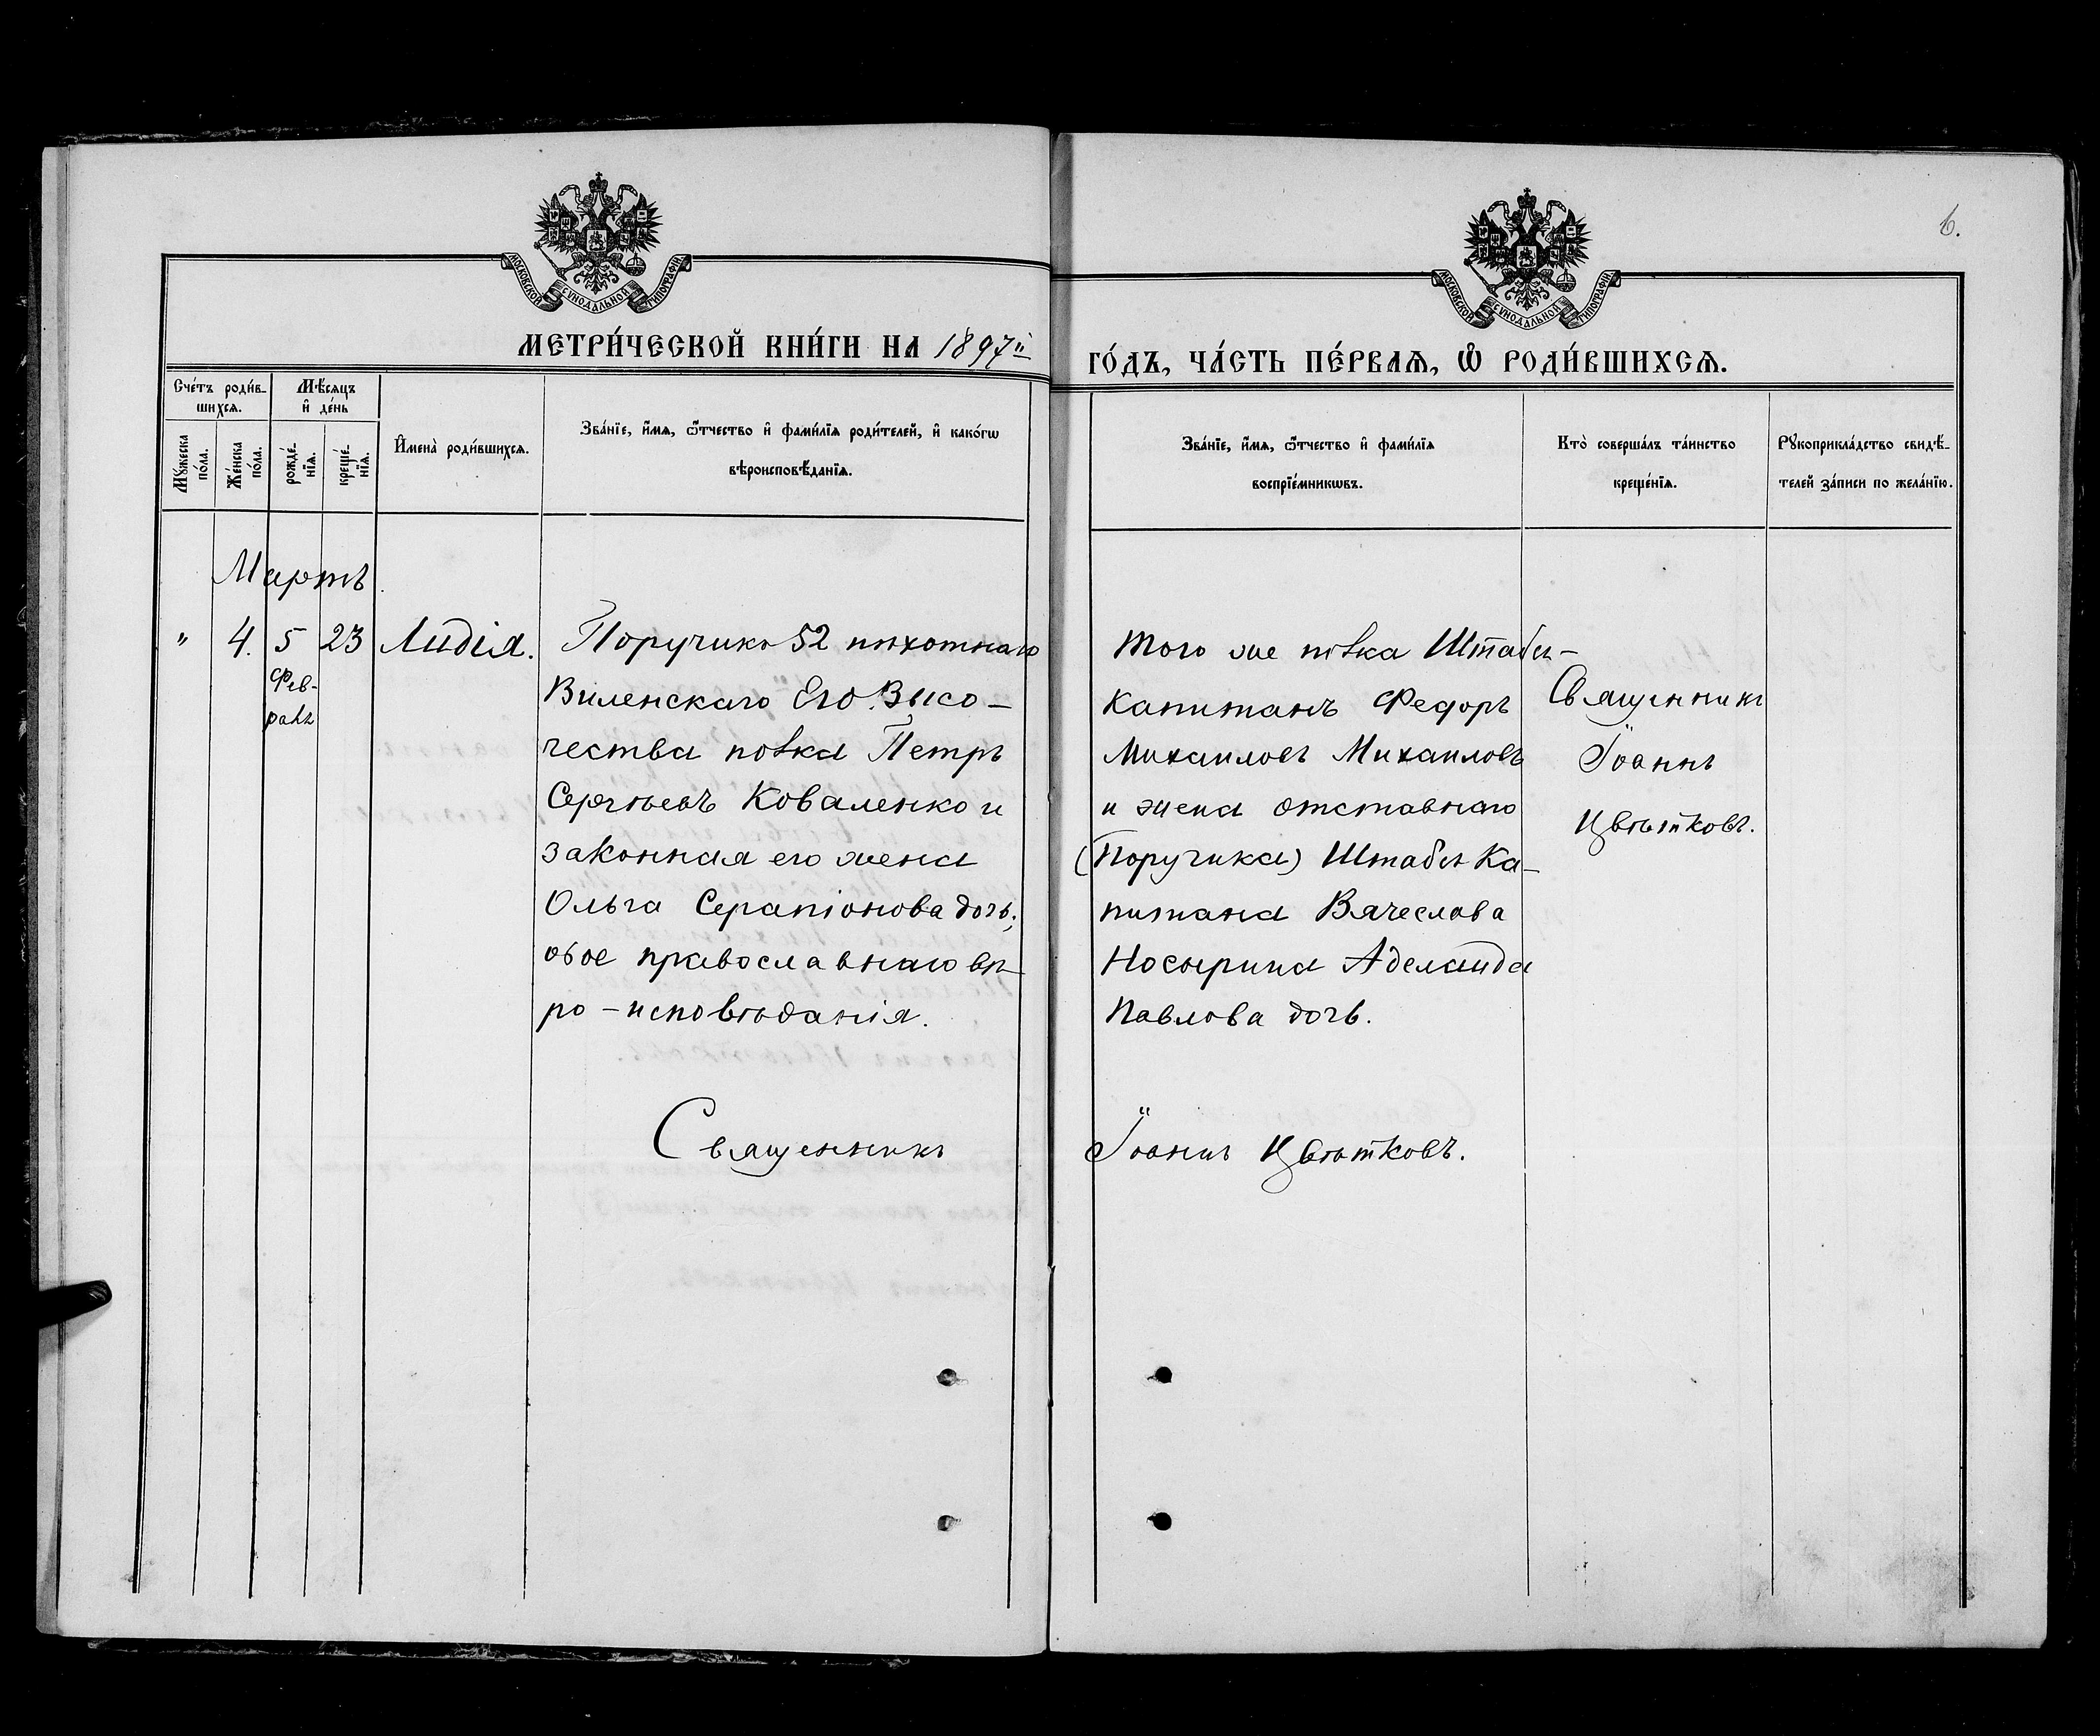 6.
МОСКОВСКОЙ СѴНОДАЛЬНОЙ ТИПОГРАФІИ
МОСКОВСКОЙ СѴНОДАЛЬНОЙ ТИПОГРАФІИ
МЕТРИ́ЧЕСКОЙ КНИ́ГИ НА 1897й
ГО́ДЪ, ЧА́СТЬ ПЕ́РВАѦ, Ѽ РОДИ́ВШИХСѦ.
Сче́тъ роди́в-
шихсѧ.
Мѣ́сяцъ
и҆ де́нь
Мꙋ́жеска
по́ла.
Же́нска
по́ла.
рожде́-
нїѧ.
креще́-
нїѧ.
И҆мена̀ роди́вшихсѧ.
Зва́нїе, и҆́мѧ, ѻ҆́тчество и҆ фами́лїѧ роди́телей, и҆ како́гѡ
вѣроисповѣ́данїѧ.
Зва́нїе, и҆́мѧ, ѻ҆́тчество и҆ фами́лїѧ
воспрїе́мникѡвъ.
Кто̀ соверша́лъ та́инство
креще́нїѧ.
Рꙋкоприкла́дство свидѣ́-
телей за́писи по жела́нїю.
Мартъ
" 4. 5 23 Лидія.
Фев-
раля
Поручикъ 52 пѣхотнаго
Виленскаго Его Высо-
чества полка Петръ
Сергѣевъ Коваленко и
законная его жена
Ольга Серапіонова дочь;
обое православнаго вѣ-
ро-исповѣданія.
Того же полка Штабсъ-
капитанъ Федоръ
Михаиловъ Михаиловъ
и жена отставнаго
(Поручика) Штабсъ Ка-
питана Вячеслава
Носырина Аделаида
Павлова дочь.
Священникъ
Іоаннъ
Цвѣтковъ.
Священникъ Іоаннъ Цвѣтковъ.